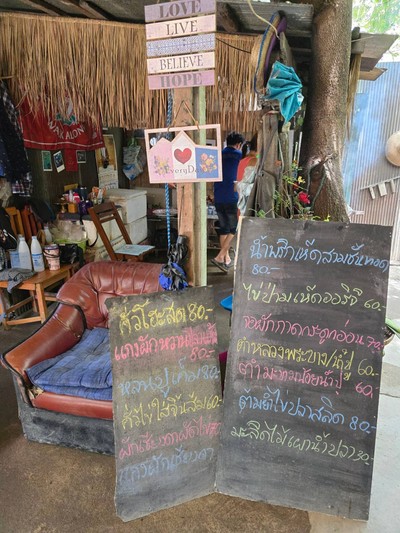 LOVE
LIVE
BELIEVE
HOPE
EveryD
คั่วโฮะสด 80.-
แกงผักหวาน
80.-
80.-
คั่วไข่ใส่จิ้นส้ม 60.-
ผักเชียงดาผัดไข่
แกงผักเชียงดา
น้ำพริกเห็ดสามชั้นทอด
80.-
ไข่ป่ามเห็ดออริจิ 60.-
จอผักกาดกระดูกอ่อน
ตำหลวงพระบาง/ 60.-
60.-
ต้มยำไข่ปลาสลิด 80.-
มะลิดไม้เผาน้ำปลา 30.-